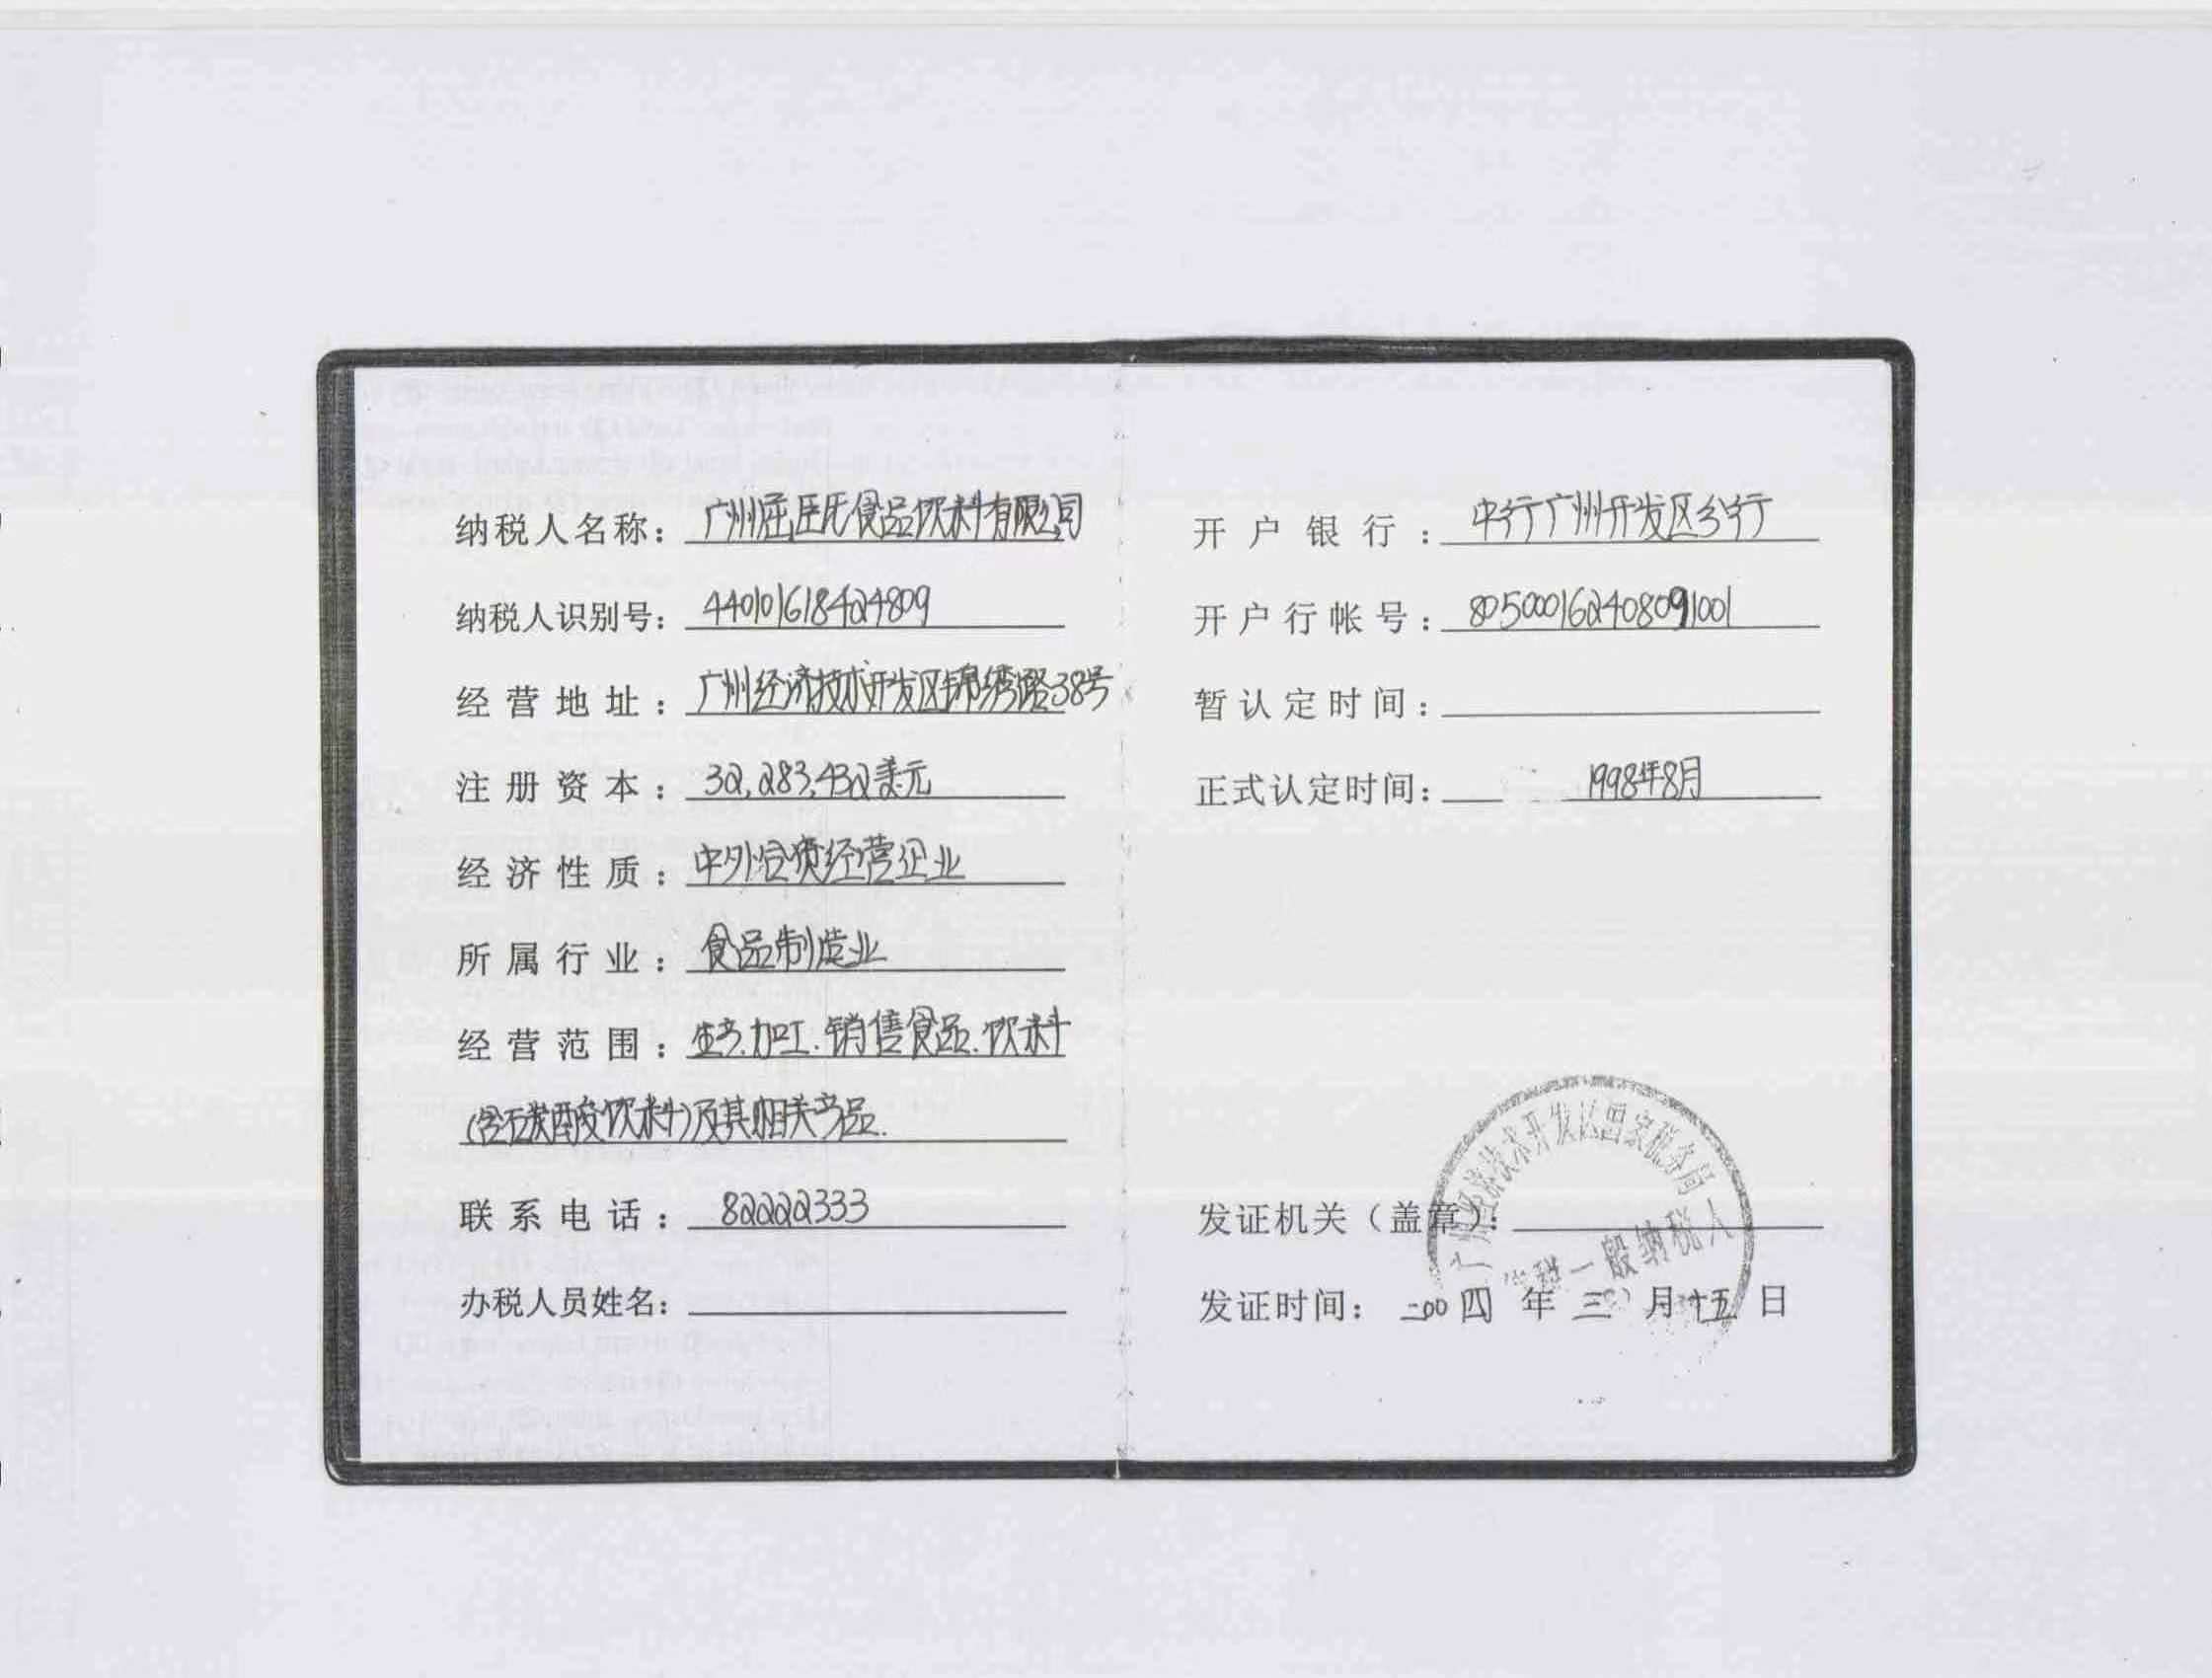 纳税人名称：广州屈臣氏食品饮料有限公司
纳税人识别号：440101618424809
经营地址：广州经济技术开发区锦绣路38号
注册资本：32,283,432美元
经济性质：中外合资经营企业
所属行业：食品制造业
经营范围：生产.加工.销售食品.饮料
(含碳酸饮料)及其相关产品.
联系电话：82222333
办税人员姓名：
开户银行：中行广州开发区分行
开户行帐号：805000162408091001
暂认定时间：
正式认定时间：1998年8月
广州经济技术开发区国家税务局
一般纳税人
发证机关（盖章）：
发证时间：二00四年三月十五日